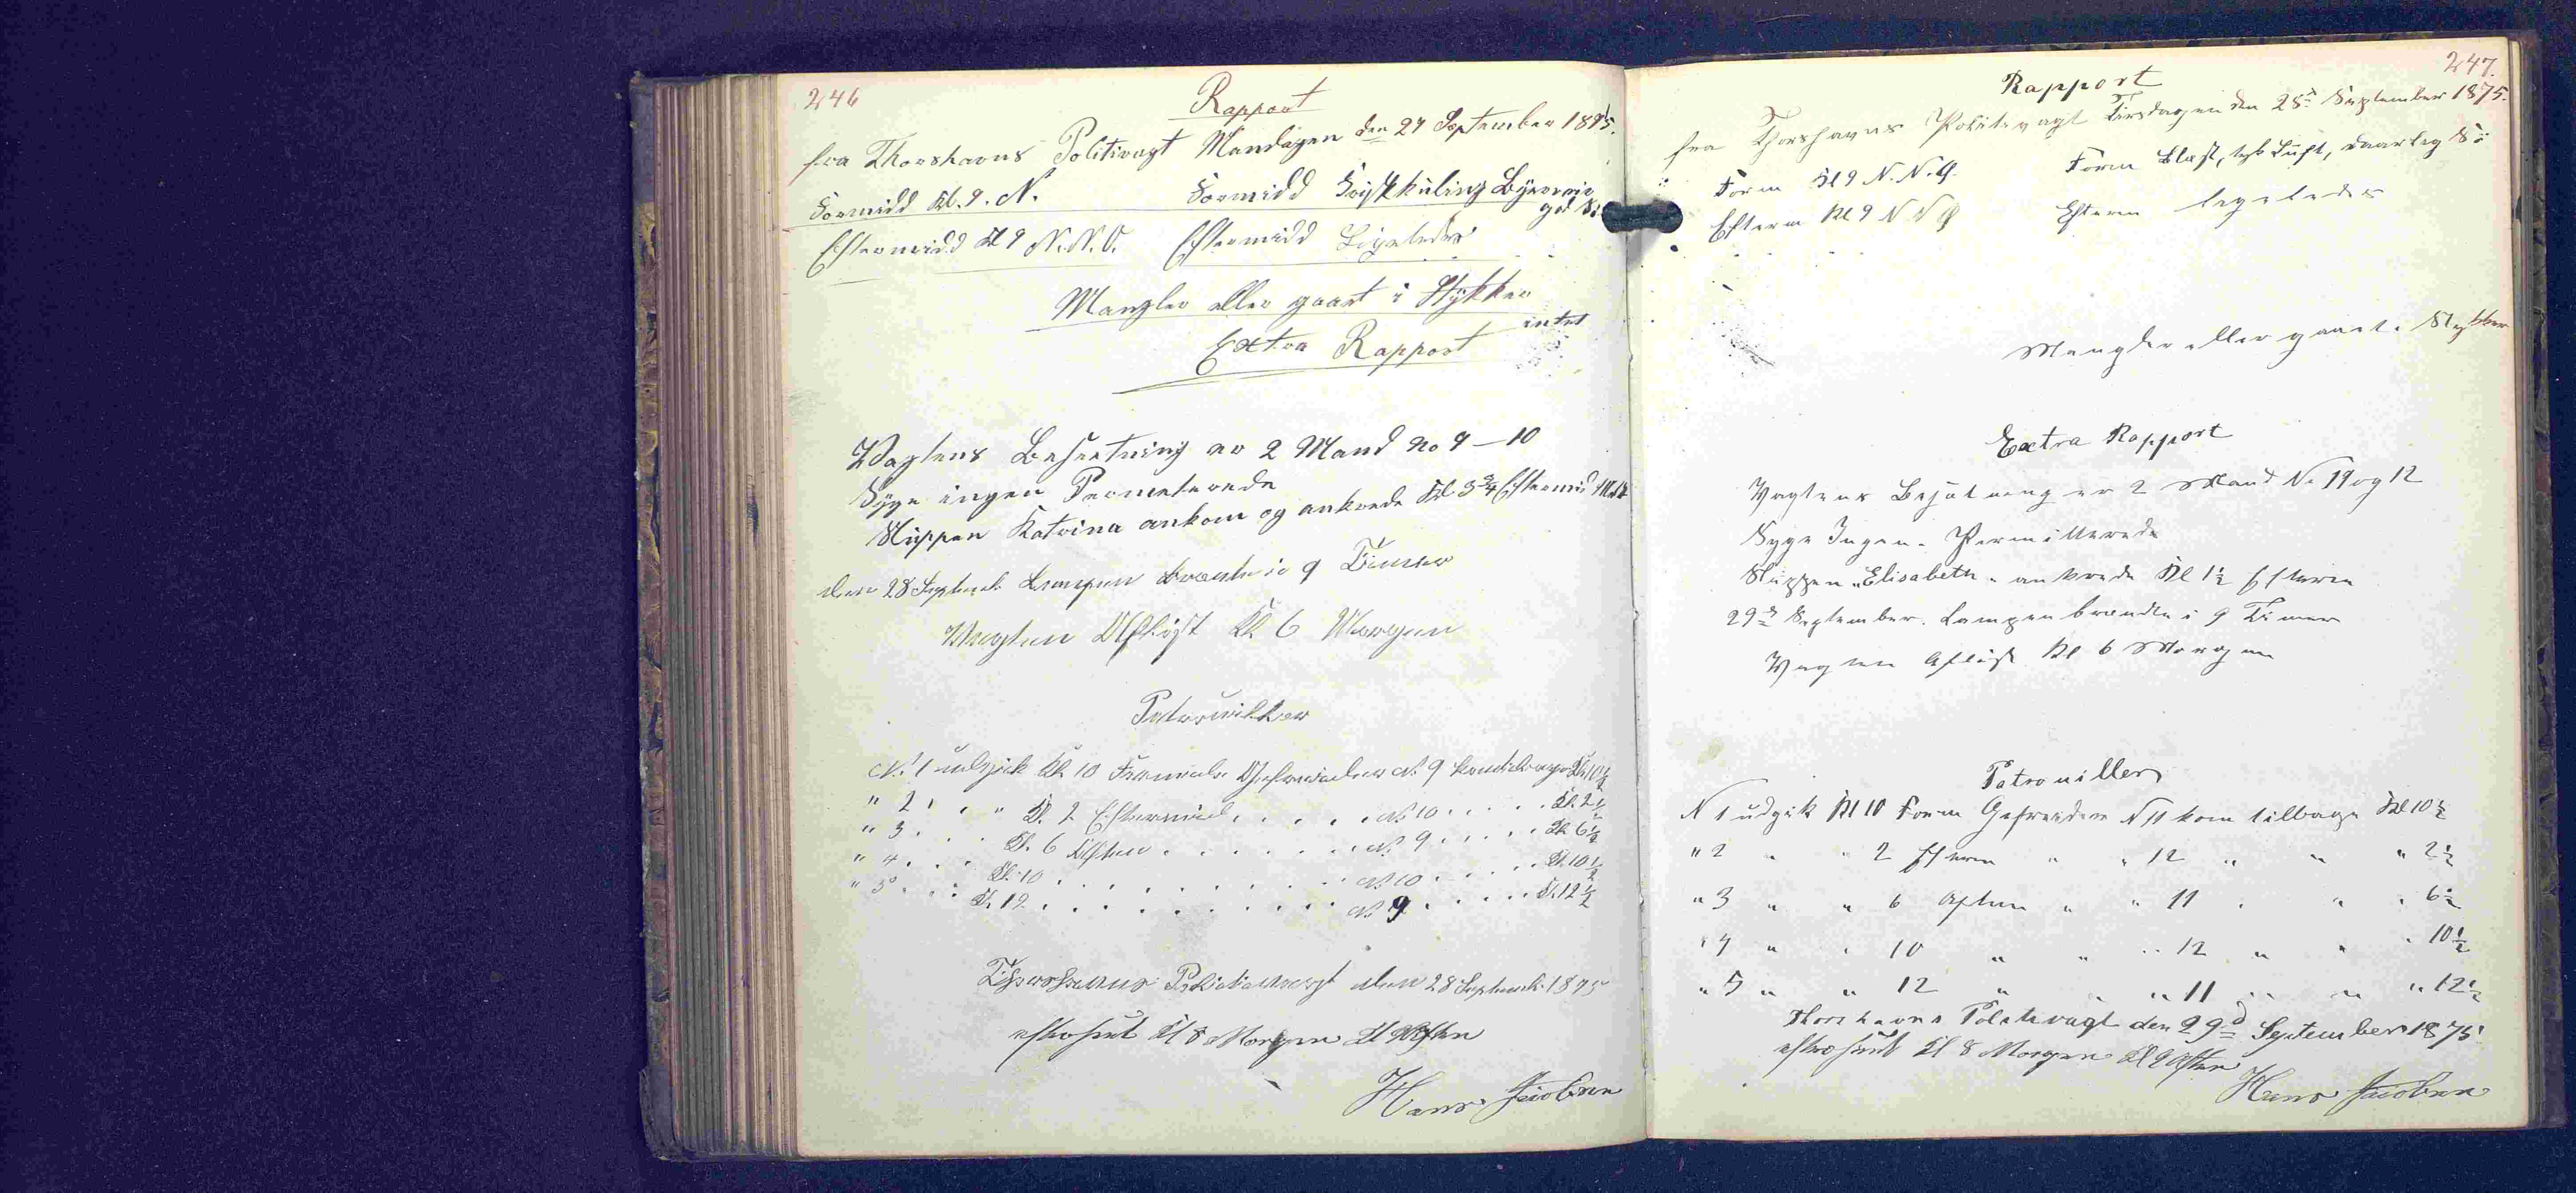 246
Rapport
fra Thorshavns Politivagt Mandagen den 27 September 1875.
Formidd Kl. 9. N. Formidd Friskkuling Byeveir
god Sö
Eftermidd Kl 9 N.N.O. Eftermidd Ligeledes
Mangler eller gaaet i Stykker
intet
Extra Rapport
Vagtens Besætning er 2 Mand No 9-10
Syge ingen Permeterede
Sluppen Katrina ankom og ankrede Kl 3 3/4 Eftermid
den 28 Septemb. Lampen brændte i 9 Timer
Vagten Aflöst Kl 6 Morgen
Patrouiller
N. 1 udgik Kl. 10 Formidd. Gefreider N. 9 kom tilbage Kl. 10 1/2
" 2 . . " Kl. 2 Eftermid. . . . . N. 10 . . . . . Kl. 2 1/2
" 3 . . . Kl. 6 Aften . . . . . . N. 9 . . . . Kl. 6 1/2
" 4 . . . Kl. 10 . . . . . . . . N. 10 . . . . . Kl. 10 1/2
" 5 . . . Kl. 12 . . . . . . . . N. 9 . . . . . Kl. 12 1/2
Thorshavns Politivagt den 28 Septemb. 1875
efterseet Kl 8 Morgen Kl 9 Aften
Hans Jacobsen
247.
Rapport
fra Thorshavns Politivagt Tirsdagen den 28d September 1875.
Form Kl 9 N.N.O. Form Blæst, tyk Luft, daarlig Sö
Efterm Kl 9 N N O Efterm ligeledes
Mangler eller gaaet i Stykker
Extra Rapport
Vagtens Besætning er 2 Mand No 11 og 12
Syge Ingen. Permitterede
Sluppen "Elisabeth" ankrede Kl 1 1/2 Efterm
29d September. Lampen brændte i 9 Timer
Vagten Aflöst Kl 6 Morgen
Patrouiller
N 1 udgik Kl 10 Form Gefreideren N 11 kom tilbage Kl 10 1/2
" 2 " " 2 Efterm " " 12 " " " 2 1/2
" 3 " " 6 Aften " " 11 " " " 6 1/2
" 4 " " 10 " " " 12 " " " 10 1/2
" 5 " " 12 " " " 11 " " " 12 1/2
Thorshavns Politivagt den 29d September 1875
efterseet Kl 8 Morgen Kl 9 Aften
Hans Jacobsen